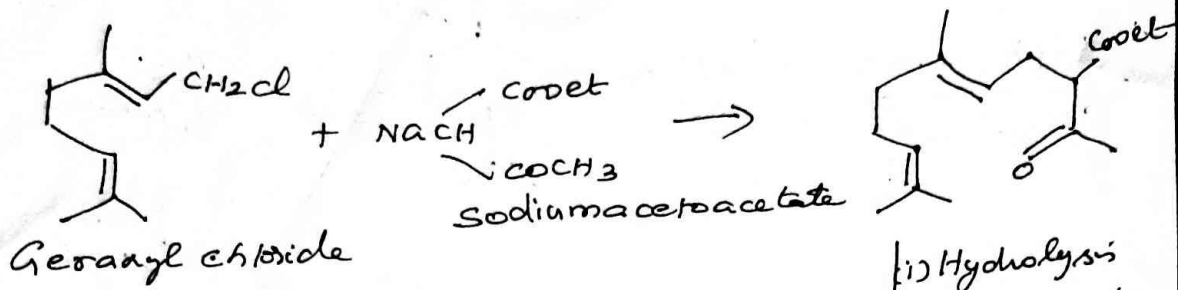 CH2Cl
Cooet
+ NaCH
Cooet
COCH3
Sodiumacetoacetate
O
Geranyl chloride
(i) Hydrolysis